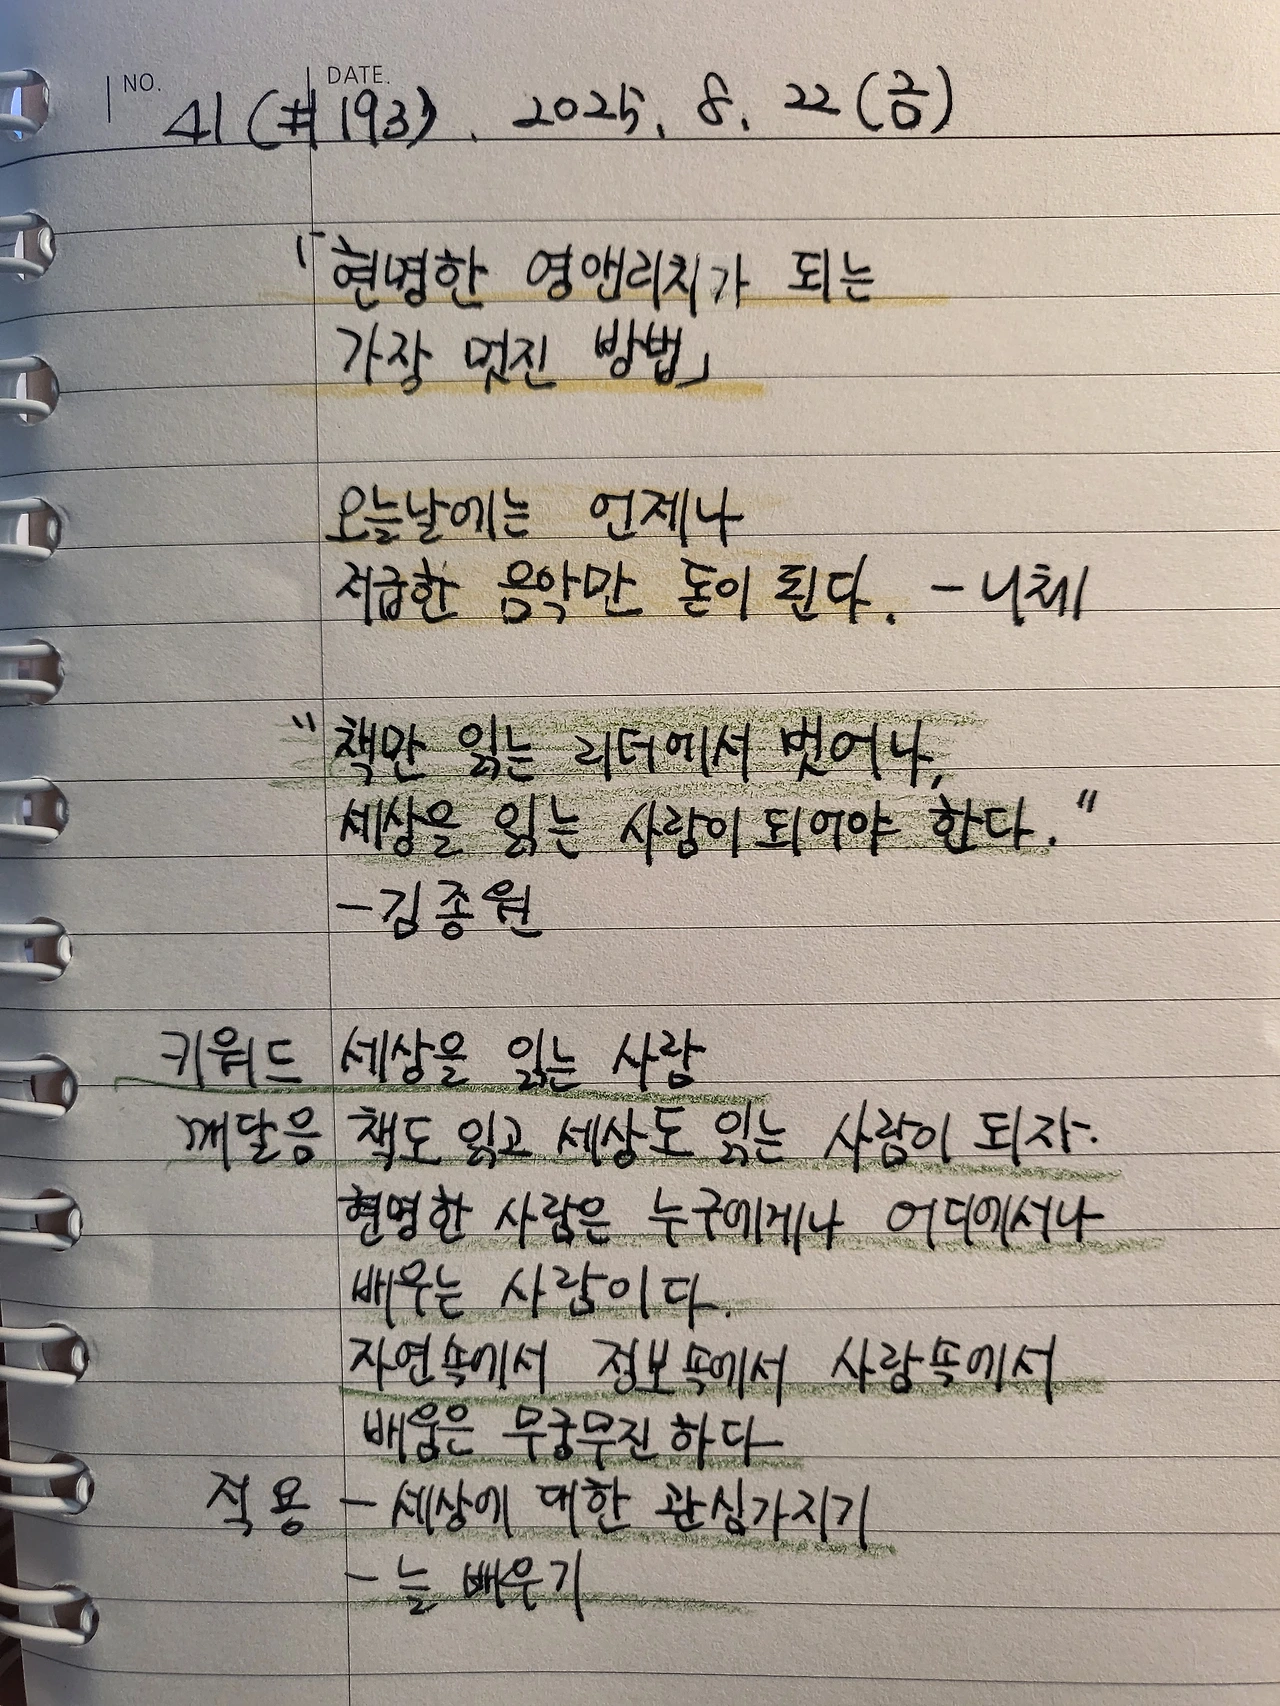 NO. DATE.
41 (#193). 2025. 8. 22 (금)
「현명한 영앤리치가 되는
가장 멋진 방법」
오늘날에는 언제나
저급한 음악만 돈이 된다. - 니체
"책만 읽는 리더에서 벗어나,
세상을 읽는 사람이 되어야 한다."
- 김종원
키워드 세상을 읽는 사람
깨달음 책도 읽고 세상도 읽는 사람이 되자.
현명한 사람은 누구에게나 어디에서나
배우는 사람이다.
자연속에서 정보속에서 사람속에서
배움은 무궁무진하다
적용 - 세상에 대한 관심가지기
- 늘 배우기